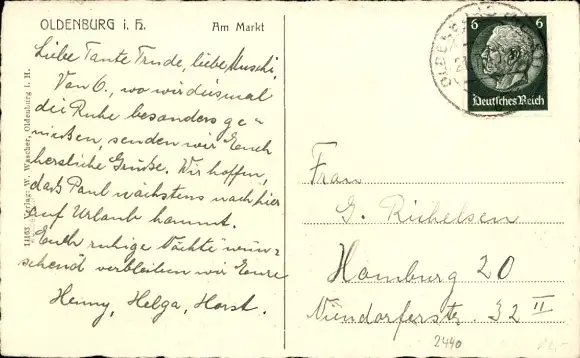 OLDENBURG i. H. Am Markt
Liebe Tante Trude, liebe Muschi.
Von O., wo wir diesmal
die Ruhe besonders ge-
nießen, senden wir Euch
herzliche Grüße. Wir hoffen,
daß Paul nächstens nach hier
auf Urlaub kommt.
Euch ruhige Nächte wün-
schend verbleiben wir Eure
Henny, Helga, Horst.
11163 Verlag: W. Wascher, Oldenburg i. H.
6 6
Deutsches Reich
OLDENBURG
Frau
G. Richelsen
Hamburg 20
Niendorferstr. 32 II
2440